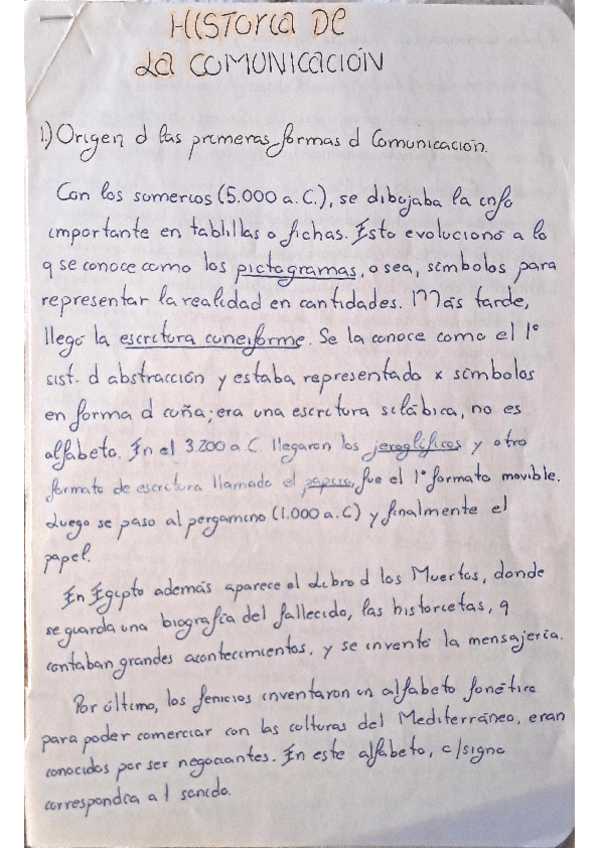 HISTORIA DE
LA COMUNICACIÓN
1) Origen d las primeras formas d Comunicación.
Con los sumerios (5.000 a.C.), se dibujaba la info
importante en tablillas o fichas. Esto evolucionó a lo
q se conoce como los pictogramas, o sea, símbolos para
representar la realidad en cantidades. Más tarde,
llegó la escritura cuneiforme. Se la conoce como el 1º
sist. d abstracción y estaba representado x símbolos
en forma d cuña; era una escritura silábica, no es
alfabeto. En el 3.200 a C. llegaron los jeroglíficos y otro
formato de escritura llamado el papiro, fue el 1º formato movible.
Luego se paso al pergamino (1.000 a.C) y finalmente el
papel.
En Egipto además aparece el Libro d los Muertos, donde
se guarda una biografía del fallecido, las historietas, q
contaban grandes acontecimientos, y se inventó la mensajería.
Por último, los fenicios inventaron un alfabeto fonético
para poder comerciar con las culturas del Mediterráneo, eran
conocidos por ser negociantes. En este alfabeto, c/signo
correspondía a 1 sonido.